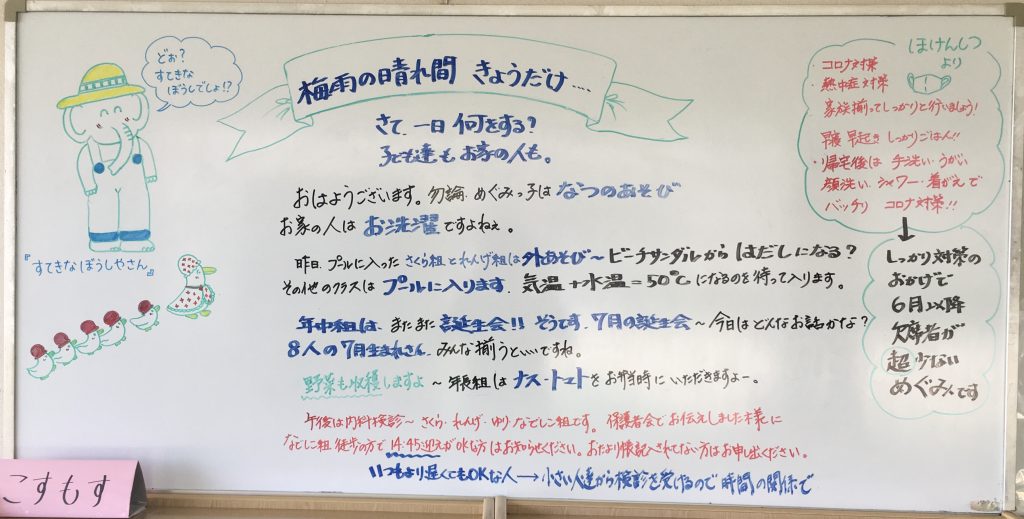 どぉ？
すてきな
ぼうしでしょ!?
梅雨の晴れ間 きょうだけ....
さて、一日 何をする？
子ども達も お家の人も。
おはようございます。勿論、めぐみっ子は なつのあそび
お家の人は お洗濯 ですよねぇ。
昨日、プールに入った さくら組とれんげ組は 外あそび〜ビーチサンダルから はだしになる？
その他のクラスは プールに入ります。気温＋水温＝50℃ になるのを待って入ります。
年中組は、またまた 誕生会!! そうです、7月の誕生会〜今日はどんなお話かな？
8人の7月生まれさん、みんな揃うといいですね。
野菜も収穫しますよ〜年長組は ナス・トマト をお弁当時にいただきますよー。
午後は内科検診〜さくら・れんげ・ゆり・なでしこ組です。保護者会でお伝えしました様に
なでしこ組 徒歩の方で 14:45迎えがOKな方はお知らせください。おたより帳記入されてない方はお申し出ください。
いつもより遅くてもOKな人→小さい人達から検診を受けるので 時間の関係で
『すてきなぼうしやさん』
ほけんしつ
より
・コロナ対策
・熱中症対策
家族揃ってしっかりと行いましょう！
早寝 早起き しっかりごはん!!
・帰宅後は 手洗い・うがい
顔洗い・シャワー・着がえで
バッチリ コロナ対策!!
しっかり対策の
おかげで
6月以降
欠席者が
超少ない
めぐみです
こすもす